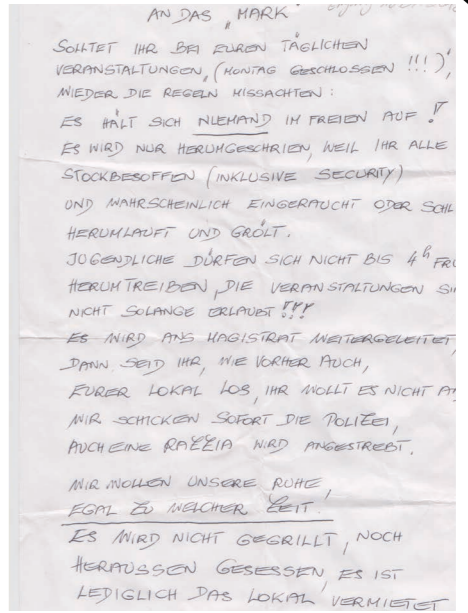 AN DAS "MARK"
SOLLTET IHR BEI EUREN TÄGLICHEN
VERANSTALTUNGEN, (MONTAG GESCHLOSSEN !!!),
WIEDER DIE REGELN MISSACHTEN:
ES HÄLT SICH NIEMAND IM FREIEN AUF !
ES WIRD NUR HERUMGESCHRIEN, WEIL IHR ALLE
STOCKBESOFFEN (INKLUSIVE SECURITY)
UND WAHRSCHEINLICH EINGERAUCHT ODER SCHL
HERUMLAUFT UND GRÖLT.
JUGENDLICHE DÜRFEN SICH NICHT BIS 4h FRÜ
HERUMTREIBEN, DIE VERANSTALTUNGEN SI
NICHT SOLANGE ERLAUBT !!!
ES WIRD ANS MAGISTRAT WEITERGELEITET,
DANN SEID IHR, WIE VORHER AUCH,
EURER LOKAL LOS, IHR WOLLT ES NICHT A
WIR SCHICKEN SOFORT DIE POLIZEI,
AUCH EINE RAZZIA WIRD ANGESTREBT.
WIR WOLLEN UNSERE RUHE,
EGAL ZU WELCHER ZEIT.
ES WIRD NICHT GEGRILLT, NOCH
HERAUSSEN GESESSEN, ES IST
LEDIGLICH DAS LOKAL VERMIETET